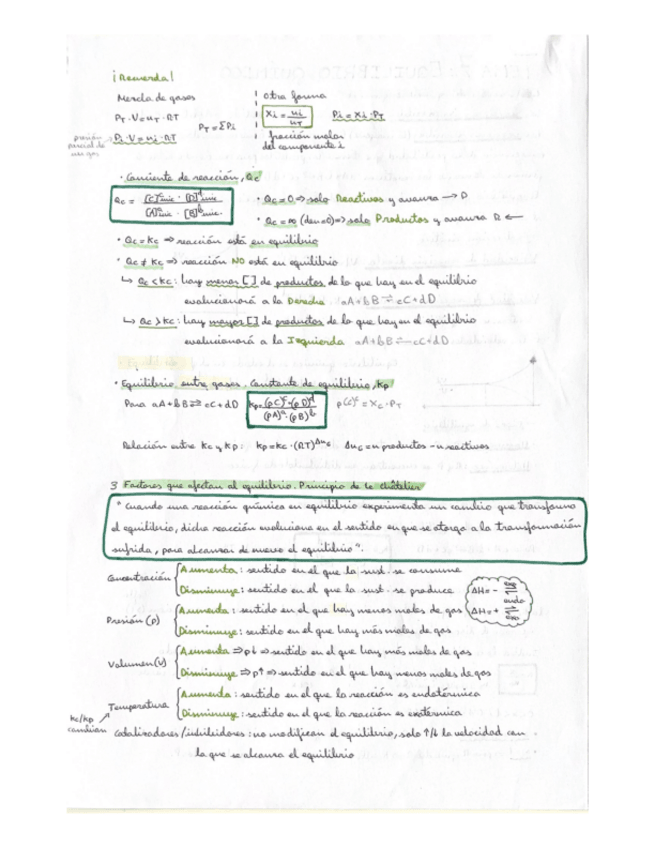 ¡Recuerda!
Mezcla de gases
PT·V=nT·RT
PT=ΣPi
Pi·V=ni·RT
presión parcial de un gas
otra forma
Xi = ni/nT
Pi=Xi·PT
fracción molar
del componente i
· Cociente de reacción, Qc
Qc = [C]^c inic · [D]^d inic / [A]^a inic · [B]^b inic
· Qc=0 ⇒ solo Reactivos y avanza → D
· Qc=∞ (den=0) ⇒ solo Productos y avanza R ←
· Qc=Kc ⇒ reacción está en equilibrio
· Qc ≠ Kc ⇒ reacción NO está en equilibrio
↳ Qc<Kc: hay menor [ ] de productos de lo que hay en el equilibrio
evolucionará a la Derecha aA+bB ⇌ cC+dD
↳ Qc>Kc: hay mayor [ ] de productos de lo que hay en el equilibrio
evolucionará a la Izquierda aA+bB ⇌ cC+dD
· Equilibrio entre gases. Constante de equilibrio, Kp
Para aA+bB⇌cC+dD Kp=(pC)^c·(pD)^d / (pA)^a·(pB)^b p(C)^c = Xc·PT
Relación entre Kc y Kp: Kp=Kc·(RT)^Δn Δn=n productos - n reactivos
3 Factores que afectan al equilibrio. Principio de le châtelier
"Cuando una reacción química en equilibrio experimenta un cambio que transforma
el equilibrio, dicha reacción evoluciona en el sentido en que se otorga a la transformación
sufrida, para alcanzar de nuevo el equilibrio".
Concentración
Aumenta: sentido en el que la sust. se consume
Disminuye: sentido en el que la sust. se produce
Presión (p)
Aumenta: sentido en el que hay menos moles de gas
Disminuye: sentido en el que hay más moles de gas
ΔH= - exo ⇌ endo
ΔH= + endo ⇌ exo
Volumen (V)
Aumenta ⇒ p↓ ⇒ sentido en el que hay más moles de gas
Disminuye ⇒ p↑ ⇒ sentido en el que hay menos moles de gas
Temperatura
Aumenta: sentido en el que la reacción es endotérmica
Disminuye: sentido en el que la reacción es exotérmica
Kc/Kp cambian
Catalizadores/inhibidores: no modifican el equilibrio, solo ↑/↓ la velocidad con
la que se alcanza el equilibrio